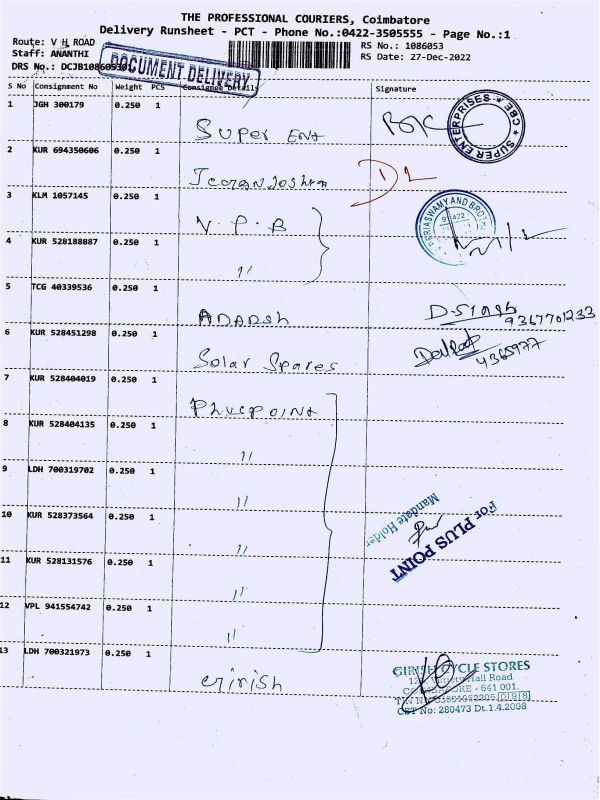 THE PROFESSIONAL COURIERS, Coimbatore
Delivery Runsheet - PCT - Phone No.:0422-3505555 - Page No.:1
Route: V H ROAD
RS No.: 1086053
Staff: ANANTHI
RS Date: 27-Dec-2022
DRS No.: DCJB108605301
DOCUMENT DELIVERY
S No Consignment No Weight PCS Consignee Details Signature
1 JGH 300179 0.250 1
Super Ent
SUPER ENTERPRISES CBE
2 KUR 694350606 0.250 1
DL
3 KLM 1057145 0.250 1
V.P.B
PERIASWAMY AND BROS
4 KUR 528188887 0.250 1
"
5 TCG 40339536 0.250 1
ADARSH
9367701233
6 KUR 528451298 0.250 1
Solar Spares
4365977
7 KUR 528404019 0.250 1
PLUSPOINT
8 KUR 528404135 0.250 1
"
9 LDH 700319702 0.250 1
"
10 KUR 528373564 0.250 1
"
For PLUS POINT
Mandate Holder
11 KUR 528131576 0.250 1
"
12 VPL 941554742 0.250 1
"
13 LDH 700321973 0.250 1
Girish
GIRISH CYCLE STORES
Variety Hall Road
COIMBATORE - 641 001.
CST No: 280473 Dt.1.4.2008